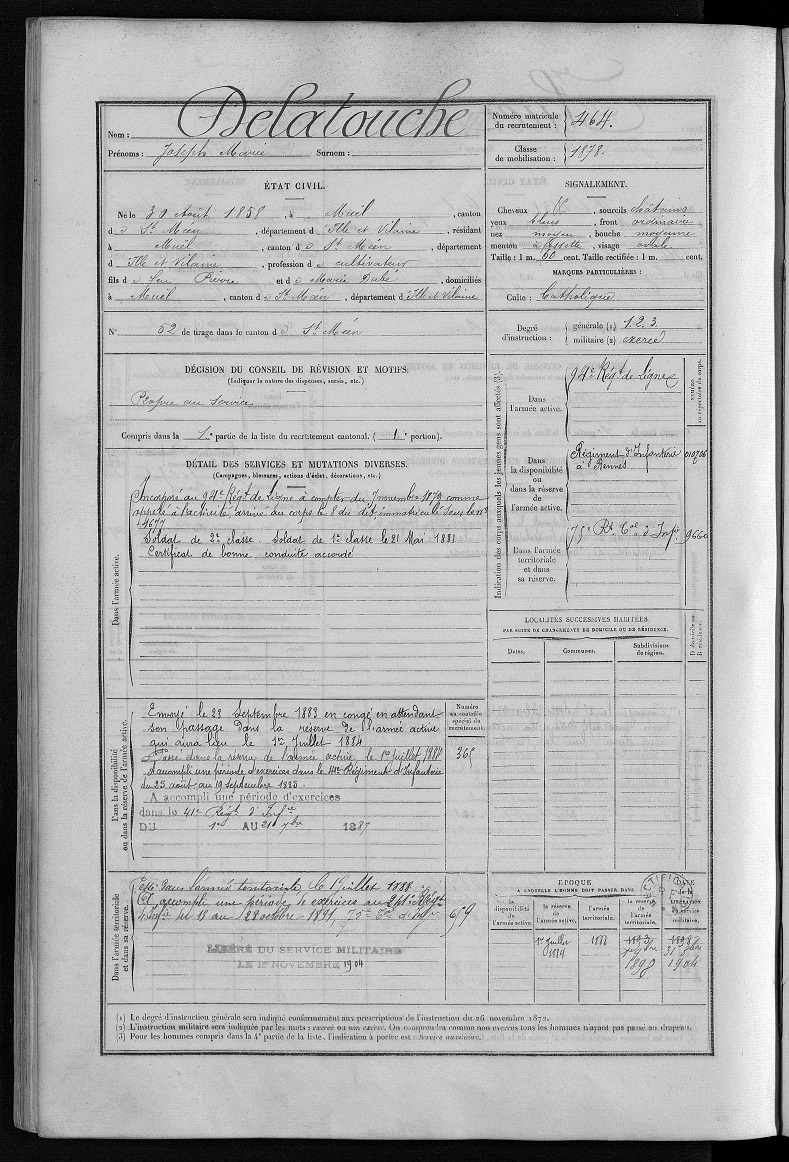 Nom : Delatouche
Prénoms : Joseph Marie Surnom :
Numéro matricule du recrutement : 464.
Classe de mobilisation : 1878.
ÉTAT CIVIL.
Né le 30 Août 1858, à Muël, canton
d e St Méen, département d'Ille et Vilaine, résidant
à Muël, canton d e St Méen, département
d'Ille et Vilaine, profession d e cultivateur
fils d e feu Pierre et d e Marie Dubé, domiciliés
à Muël, canton d e St Méen, département d'Ille et Vilaine
N° 52 de tirage dans le canton d e St Méen
SIGNALEMENT.
Cheveux et sourcils châtains
yeux bleus, front ordinaire
nez moyen, bouche moyenne
menton à fossette, visage ovale
Taille : 1 m. 60 cent. Taille rectifiée : 1 m. cent.
MARQUES PARTICULIÈRES :
Culte : Catholique
Degré d'instruction : générale (1) 1.2.3.
militaire (2) exercé
DÉCISION DU CONSEIL DE RÉVISION ET MOTIFS.
(Indiquer la nature des dispenses, sursis, etc.)
Propre au service
Compris dans la 1re partie de la liste du recrutement cantonal. ( 1e portion).
DÉTAIL DES SERVICES ET MUTATIONS DIVERSES.
(Campagnes, blessures, actions d'éclat, décorations, etc.)
Dans l'armée active.
Incorporé au 94e Régt de Ligne à compter du 7 novembre 1879 comme
appelé à l'activité, arrivé au corps le 8 du dit, immatriculé sous le n°
4677
Soldat de 2e classe. Soldat de 1re classe le 21 Mai 1881
Certificat de bonne conduite accordé
Indication des corps auxquels les jeunes gens sont affectés (3).
NUMÉRO au répertoire du corps.
Dans l'armée active.
94e Régt de Ligne
Dans la disponibilité ou dans la réserve de l'armée active.
Régiment d'Infanterie
à Rennes
Dans l'armée territoriale et dans sa réserve.
75e Rt d'Infie 9660
LOCALITÉS SUCCESSIVES HABITÉES
PAR SUITE DE CHANGEMENTS DE DOMICILE OU DE RÉSIDENCE.
Dates. Communes. Subdivisions de région. D domicile ou R résidence.
Dans la disponibilité ou dans la réserve de l'armée active.
Numéro au contrôle spécial du recrutement.
Envoyé le 23 Septembre 1883 en congé en attendant
son passage dans la réserve de l'armée active
qui aura lieu le 1er Juillet 1884
Passé dans la réserve de l'armée active le 1er Juillet 1884
A accompli une période d'exercices dans le 41e Régiment d'Infanterie
du 25 août au 19 septembre 1885.
A accompli une période d'exercices
dans le 41e Régt d'Infie
DU 1er AU 21 7bre 1887
Dans l'armée territoriale et dans sa réserve.
Passé dans l'armée territoriale le 1er Juillet 1888
A accompli une période d'exercices au
du 18 au 28 octobre 1891 75e
LIBÉRÉ DU SERVICE MILITAIRE
LE 1er NOVEMBRE 1904
679
ÉPOQUE
A LAQUELLE L'HOMME DOIT PASSER DANS
la disponibilité de l'armée active. la réserve de l'armée active. l'armée territoriale. la réserve de l'armée territoriale.
DATE de la LIBÉRATION du service militaire.
1er Juillet 1884
1888
1898
1904
(1) Le degré d'instruction générale sera indiqué conformément aux prescriptions de l'instruction du 26 novembre 1872.
(2) L'instruction militaire sera indiquée par les mots : exercé ou non exercé. On comprendra comme non exercés tous les hommes n'ayant pas passé au drapeau.
(3) Pour les hommes compris dans la 4e partie de la liste, l'indication à porter est : Service auxiliaire.